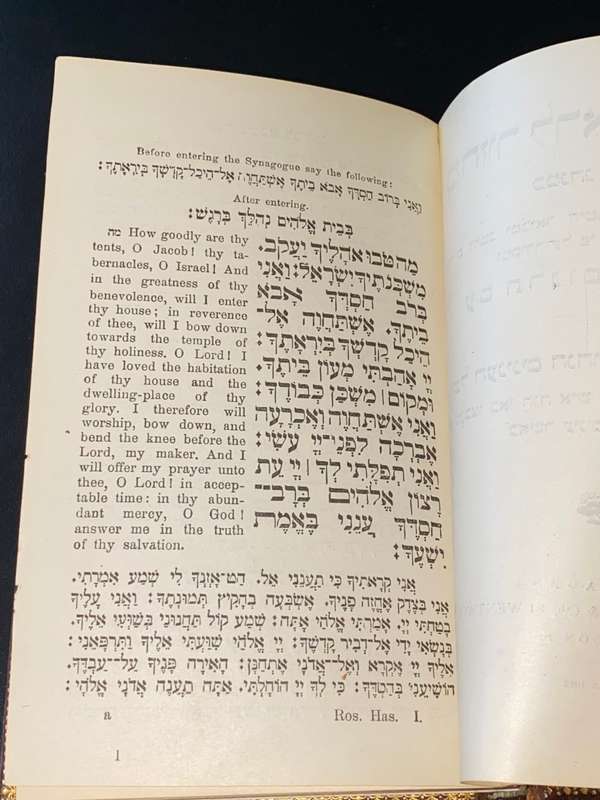 Before entering the Synagogue say the following:
וַאֲנִי בְּרוֹב חַסְדְּךָ אָבֹא בֵיתֶךָ אֶשְׁתַּחֲוֶה אֶל־הֵיכַל־קָדְשְׁךָ בְּיִרְאָתֶךָ:
After entering.
בְּבֵית אֱלֹהִים נְהַלֵּךְ בְּרָגֶשׁ:
מה How goodly are thy
tents, O Jacob! thy ta-
bernacles, O Israel! And
in the greatness of thy
benevolence, will I enter
thy house; in reverence
of thee, will I bow down
towards the temple of
thy holiness. O Lord! I
have loved the habitation
of thy house and the
dwelling-place of thy
glory. I therefore will
worship, bow down, and
bend the knee before the
Lord, my maker. And I
will offer my prayer unto
thee, O Lord! in accep-
table time: in thy abun-
dant mercy, O God!
answer me in the truth
of thy salvation.
מַה־טֹּבוּ אֹהָלֶיךָ יַעֲקֹב.
מִשְׁכְּנֹתֶיךָ יִשְׂרָאֵל: וַאֲנִי
בְּרֹב חַסְדְּךָ אָבֹא
בֵיתֶךָ. אֶשְׁתַּחֲוֶה אֶל־
הֵיכַל קָדְשְׁךָ בְּיִרְאָתֶךָ:
יְיָ אָהַבְתִּי מְעוֹן בֵּיתֶךָ.
וּמְקוֹם | מִשְׁכַּן כְּבוֹדֶךָ:
וַאֲנִי אֶשְׁתַּחֲוֶה וְאֶכְרָעָה
אֶבְרְכָה לִפְנֵי־יְיָ עֹשִׂי:
וַאֲנִי תְפִלָּתִי לְךָ | יְיָ עֵת
רָצוֹן אֱלֹהִים בְּרָב־
חַסְדֶּךָ עֲנֵנִי בֶּאֱמֶת
יִשְׁעֶךָ:
אֲנִי קְרָאתִיךָ כִּי תַעֲנֵנִי אֵל. הַט־אָזְנְךָ לִי שְׁמַע אִמְרָתִי.
אֲנִי בְּצֶדֶק אֶחֱזֶה פָנֶיךָ. אֶשְׂבְּעָה בְהָקִיץ תְּמוּנָתֶךָ: וַאֲנִי עָלֶיךָ
בָטַחְתִּי יְיָ. אָמַרְתִּי אֱלֹהַי אָתָּה: שְׁמַע קוֹל תַּחֲנוּנַי בְּשַׁוְּעִי אֵלֶיךָ.
בְּנָשְׂאִי יָדַי אֶל־דְּבִיר קָדְשֶׁךָ: יְיָ אֱלֹהָי שִׁוַּעְתִּי אֵלֶיךָ וַתִּרְפָּאֵנִי:
אֵלֶיךָ יְיָ אֶקְרָא וְאֶל־אֲדֹנָי אֶתְחַנָּן: הָאִירָה פָנֶיךָ עַל־עַבְדֶּךָ.
הוֹשִׁיעֵנִי בְחַסְדֶּךָ: כִּי לְךָ יְיָ הוֹחָלְתִּי. אַתָּה תַעֲנֶה אֲדֹנָי אֱלֹהָי:
a Ros. Has. I.
1